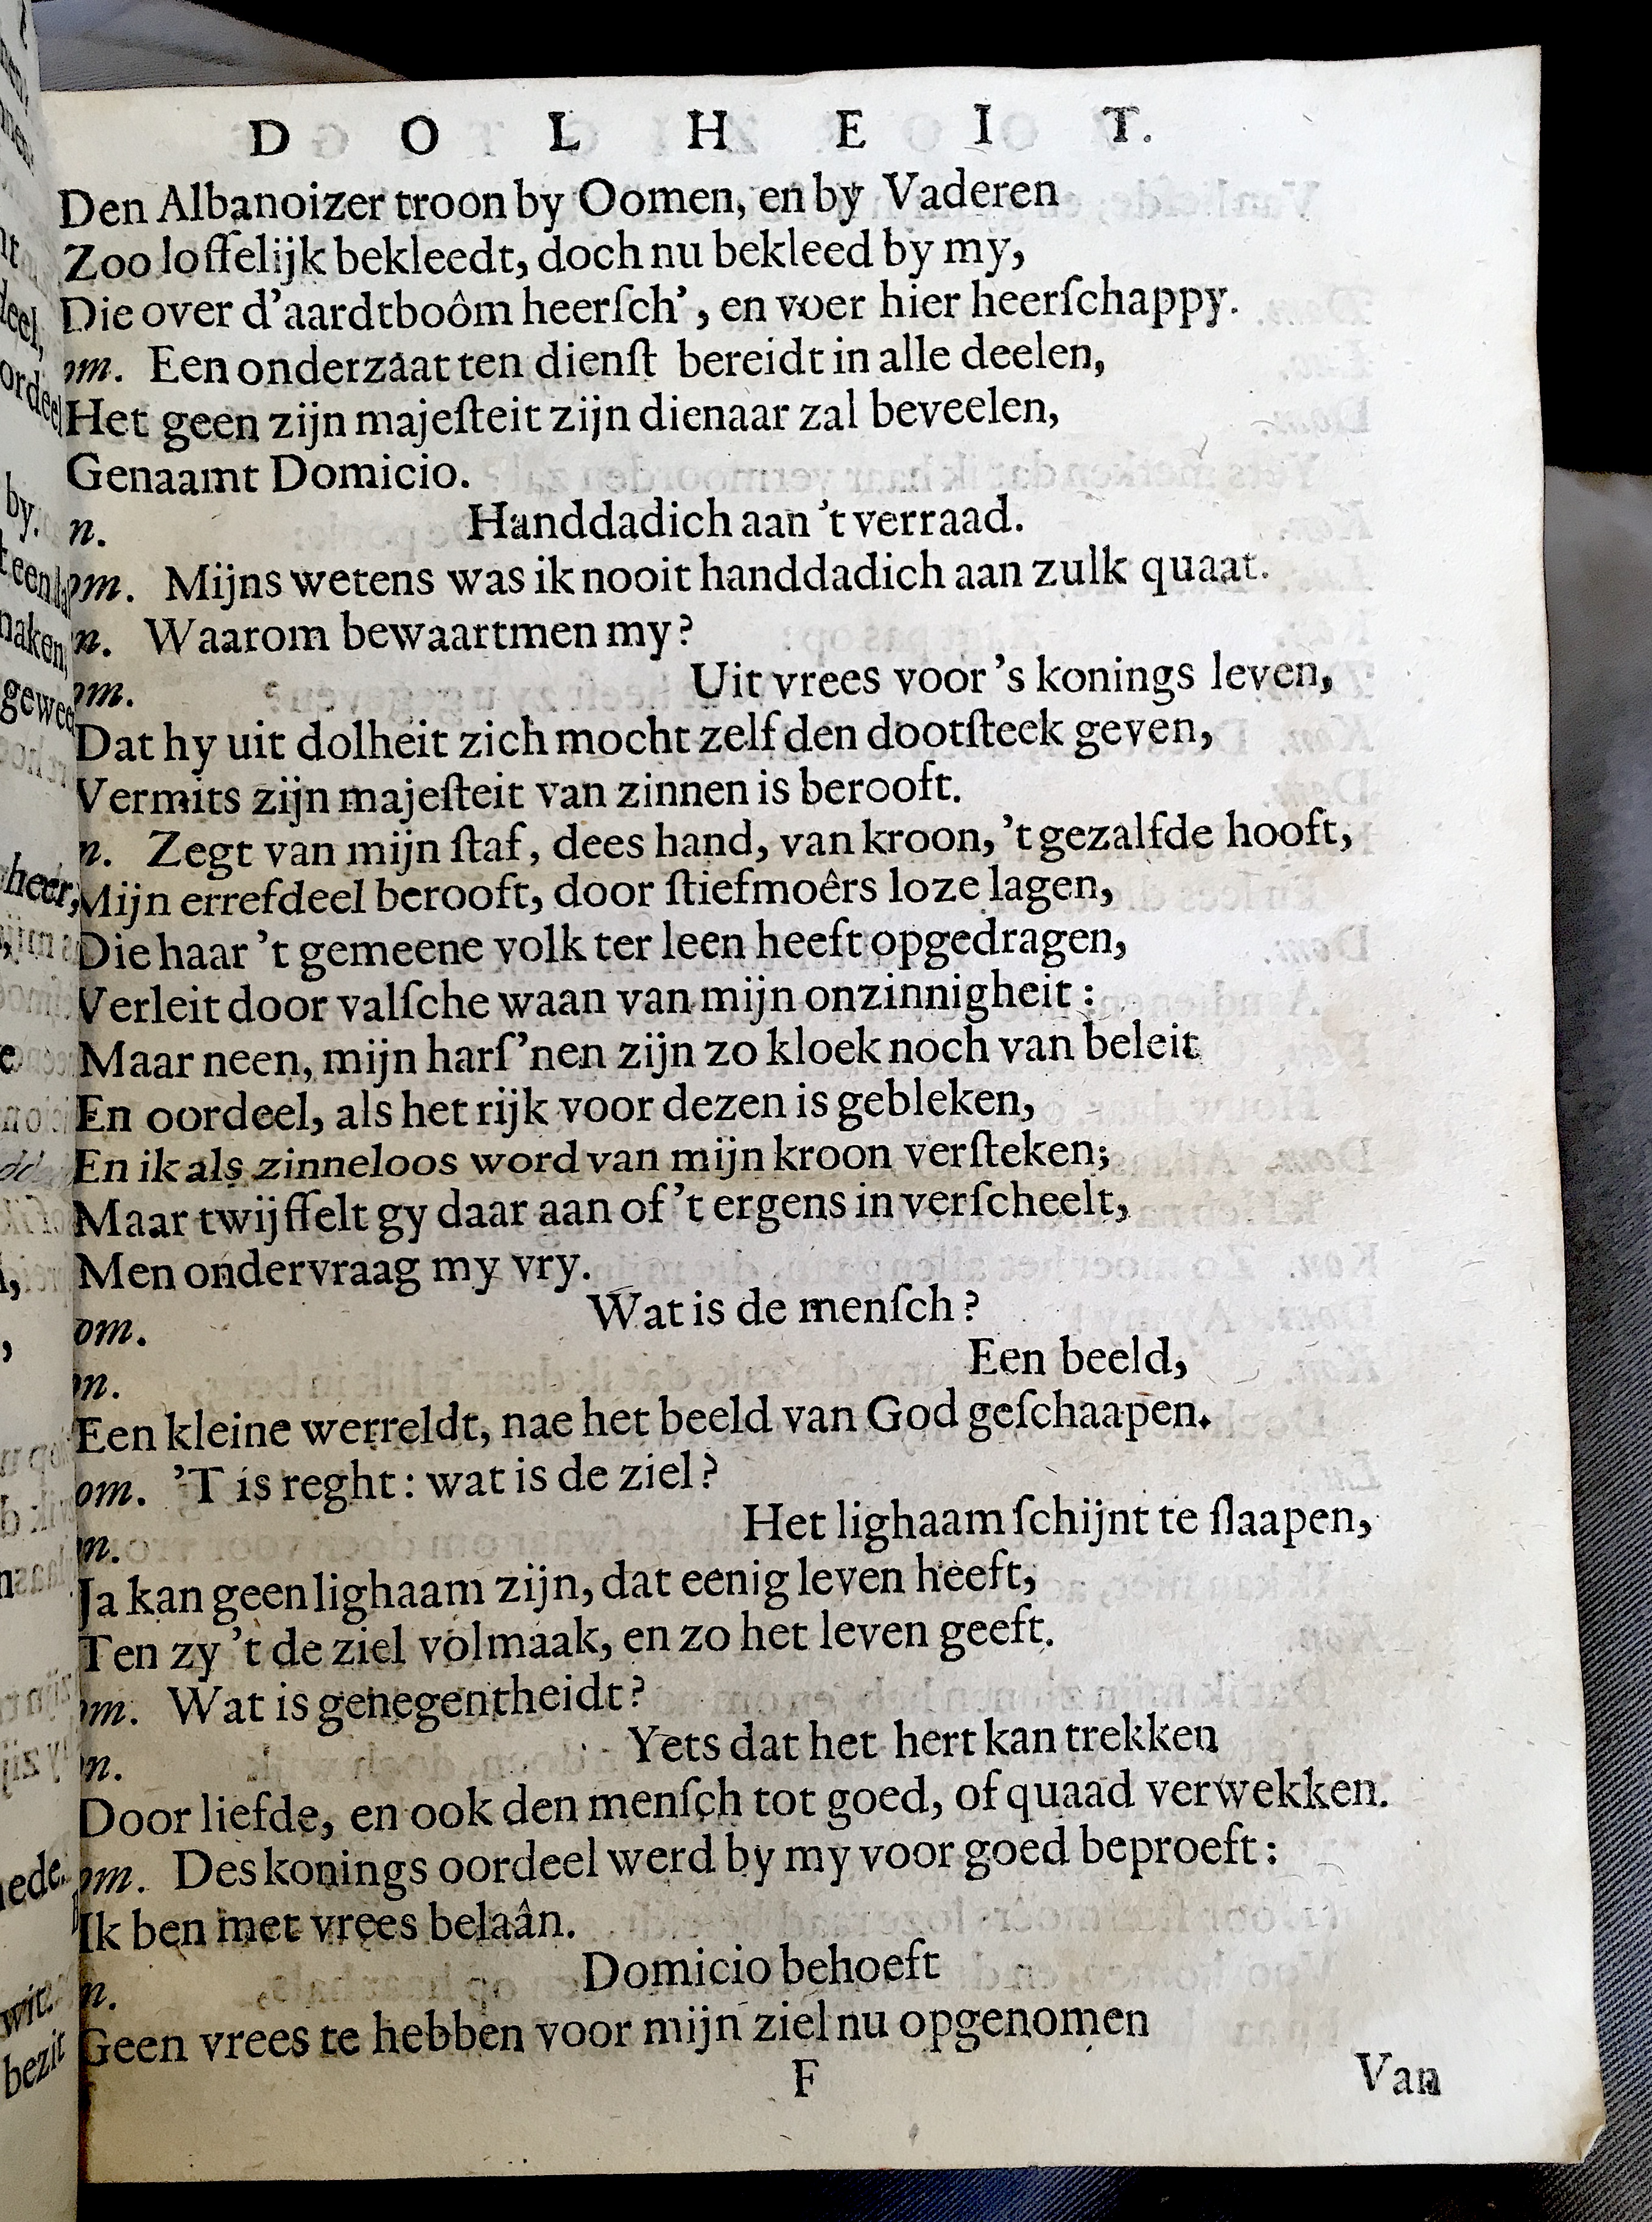 D O L H E I T.
Den Albanoizer troon by Oomen, en by Vaderen
Zoo loffelijk bekleedt, doch nu bekleed by my,
Die over d'aardtboôm heerſch', en voer hier heerſchappy.
om. Een onderzaat ten dienſt bereidt in alle deelen,
Het geen zijn majeſteit zijn dienaar zal beveelen,
Genaamt Domicio.
n. Handdadich aan 't verraad.
om. Mijns wetens was ik nooit handdadich aan zulk quaat.
n. Waarom bewaartmen my?
om. Uit vrees voor 's konings leven,
Dat hy uit dolheit zich mocht zelf den dootſteek geven,
Vermits zijn majeſteit van zinnen is berooft.
n. Zegt van mijn ſtaf, dees hand, van kroon, 't gezalfde hooft,
Mijn errefdeel berooft, door ſtiefmoêrs loze lagen,
Die haar 't gemeene volk ter leen heeft opgedragen,
Verleit door valſche waan van mijn onzinnigheit:
Maar neen, mijn harſ'nen zijn zo kloek noch van beleit
En oordeel, als het rijk voor dezen is gebleken,
En ik als zinneloos word van mijn kroon verſteken;
Maar twijffelt gy daar aan of 't ergens in verſcheelt,
Men ondervraag my vry.
om. Wat is de menſch?
n. Een beeld,
Een kleine werreldt, nae het beeld van God geſchaapen.
om. 'T is reght: wat is de ziel?
n. Het lighaam ſchijnt te ſlaapen,
Ja kan geen lighaam zijn, dat eenig leven heeft,
Ten zy 't de ziel volmaak, en zo het leven geeft.
om. Wat is genegentheidt?
n. Yets dat het hert kan trekken
Door liefde, en ook den menſch tot goed, of quaad verwekken.
om. Des konings oordeel werd by my voor goed beproeft:
Ik ben met vrees belaân.
n. Domicio behoeft
Geen vrees te hebben voor mijn ziel nu opgenomen
F
Van